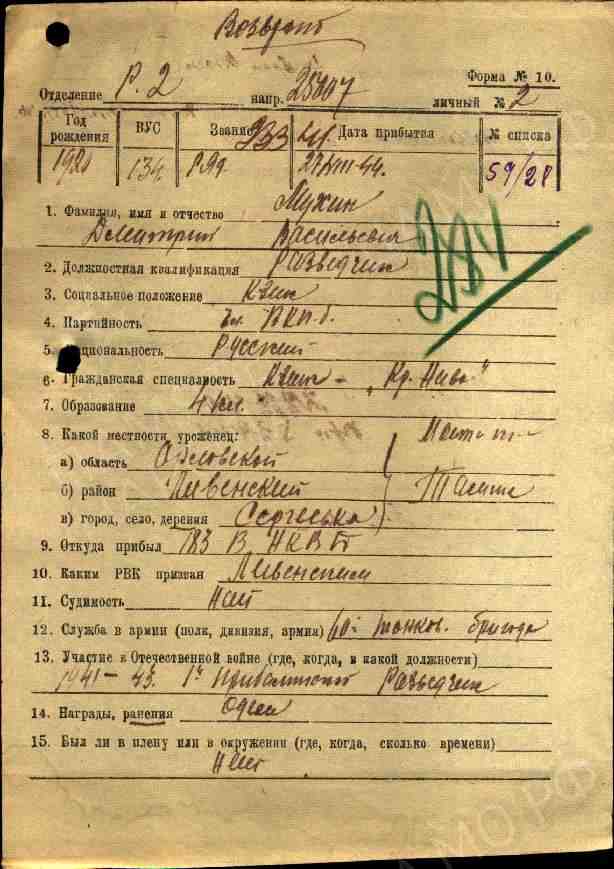 Возврат
Форма № 10.
Отделение Р. 2 напр. 25807 личный № 2
Год рождения ВУС Звание Дата прибытия № списка
1920 134 59/28
1. Фамилия, имя и отчество Мухин
Дмитрий Васильевич
2. Должностная квалификация Разведчик
3. Социальное положение
4. Партийность ВКП.б.
5. Национальность Русский
6. Гражданская специальность „Кр. Нива"
7. Образование 4 кл.
8. Какой местности уроженец:
а) область Орловской
б) район Ливенский
в) город, село, деревня
9. Откуда прибыл 183 В НКВТ
10. Каким РВК призван Ливенским
11. Судимость Нет
12. Служба в армии (полк, дивизия, армия) 60й танков. бригада
13. Участие в Отечественной войне (где, когда, в какой должности)
1941-43. 1й Прибалтский Разведчик
14. Награды, ранения
15. Был ли в плену или в окружении (где, когда, сколько времени)
Нет